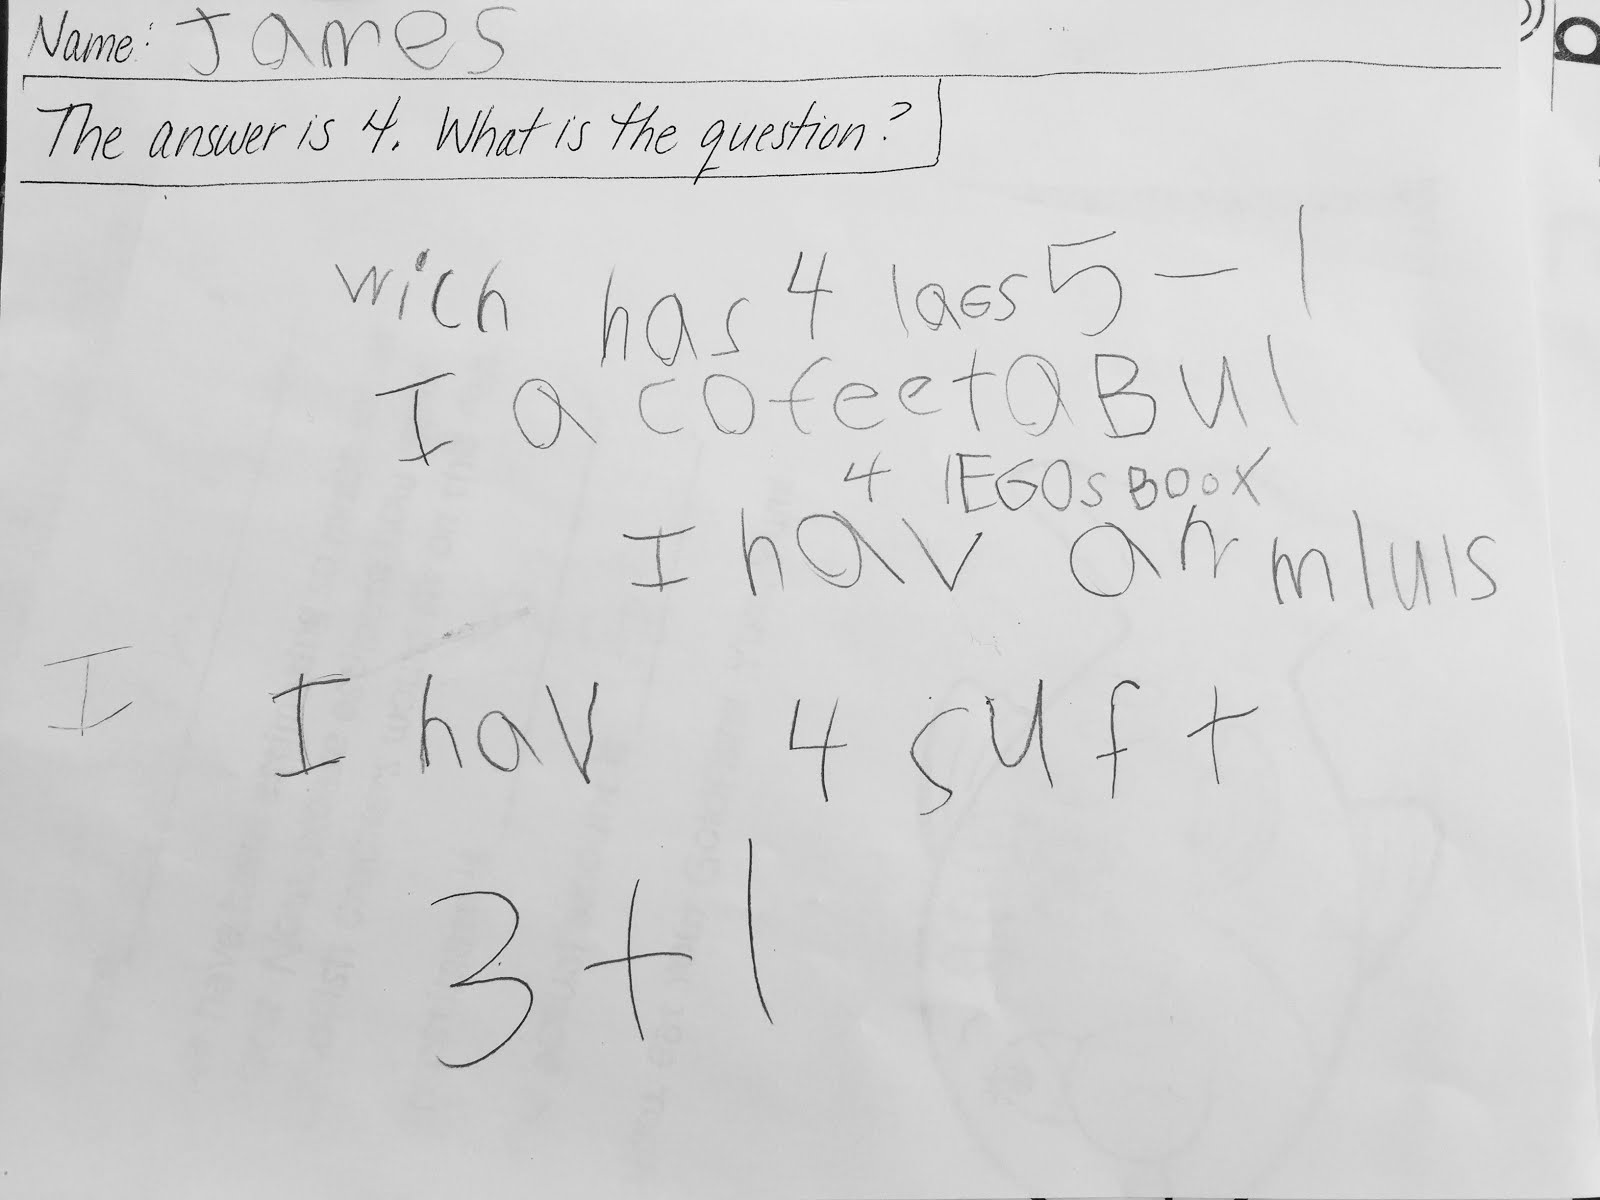 Name: James
The answer is 4. What is the question?
wich has 4 laGs 5 - 1
I a cofeetaBul
4 lEGOs BOOX
I hav an mluis
I I hav 4 suft
3+1